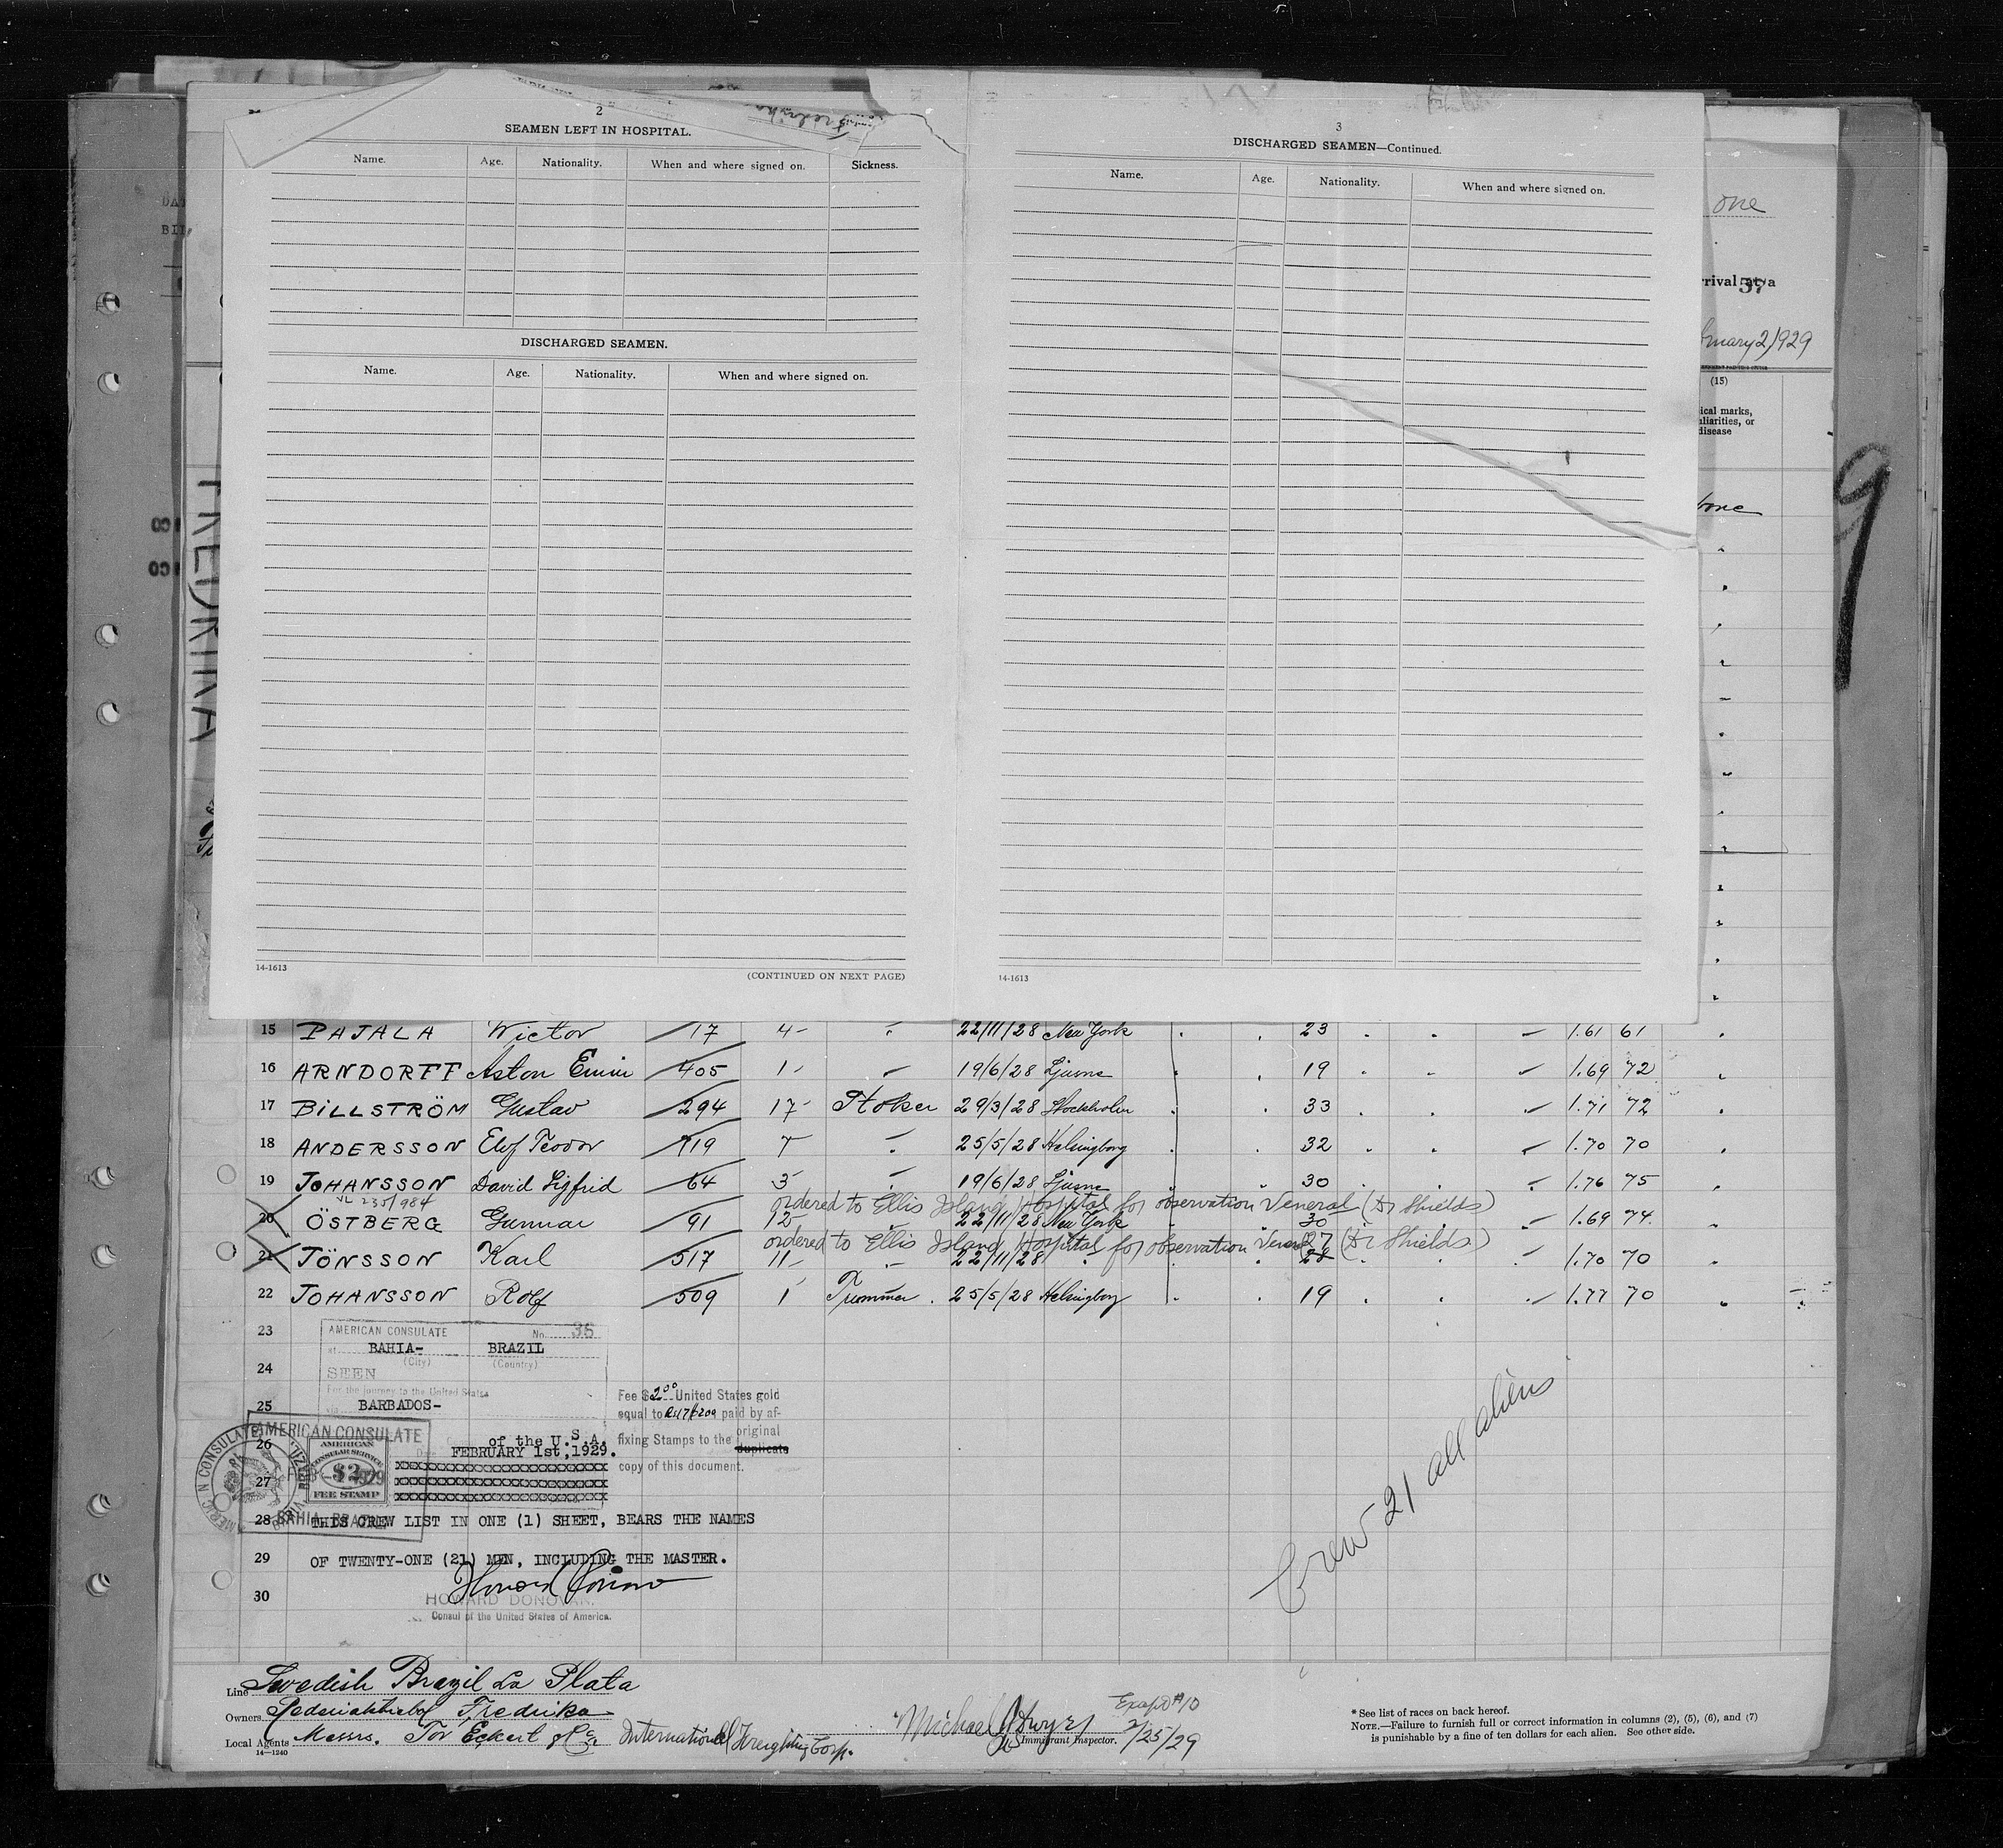 2
SEAMEN LEFT IN HOSPITAL.
Name. Age. Nationality. When and where signed on. Sickness.
DISCHARGED SEAMEN.
Name. Age. Nationality. When and where signed on.
14-1613
(CONTINUED ON NEXT PAGE)
3
DISCHARGED SEAMEN—Continued.
Name. Age. Nationality. When and where signed on.
14-1613
one
rrival at a
37
2/1929
(15)
ical marks,
uliarities, or
disease
FREDRIKA
9
15 PAJALA Wictor 17 4 22/11/28 New York 23 1.61 61
16 ARNDORFF Aston 405 1 19/6/28 Ljusne 19 1.69 72
17 BILLSTRÖM Gustav 294 17 Stoker 29/3/28 Stockholm 33 1.71 72
18 ANDERSSON Elof Teodor 719 7 25/5/28 Helsingborg 32 1.70 70
19 JOHANSSON David Sigfrid 64 3 19/6/28 Ljusne 30 1.76 75
ordered to Ellis Island Hospital for observation Veneral (Dr Shields)
20 ÖSTBERG Gunnar 91 12 22/11/28 New York 30 1.69 74
ordered to Ellis Island Hospital for observation (Dr Shields)
21 JÖNSSON Karl 517 11 22/11/28 27 1.70 70
22 JOHANSSON Rolf 509 1 Trimmer 25/5/28 Helsingborg 19 1.77 70
23
24
25
26
27
28
29
30
AMERICAN CONSULATE No. 36
at BAHIA- BRAZIL
(City) (Country)
SEEN
For the journey to the United States
via BARBADOS-
of the U.S.A.
Date FEBRUARY 1st,1929.
Fee $2.00 United States gold
equal to paid by af-
fixing Stamps to the original
duplicate
copy of this document.
AMERICAN CONSULATE
BAHIA BRAZIL
AMERICAN
CONSULAR SERVICE
$2
FEE STAMP
THIS CREW LIST IN ONE (1) SHEET, BEARS THE NAMES
OF TWENTY-ONE (21) MEN, INCLUDING THE MASTER.
HOWARD DONOVAN.
Consul of the United States of America.
Crew 21 all aliens
Line Swedish Brazil La Plata
Owners Rederiaktiebol Fredrika
Local Agents Messrs. Tor Eckert & Co International Freighting Corp.
14—1240
Michael J Dwyer
Immigrant Inspector.
2/25/29
* See list of races on back hereof.
NOTE.—Failure to furnish full or correct information in columns (2), (5), (6), and (7)
is punishable by a fine of ten dollars for each alien. See other side.